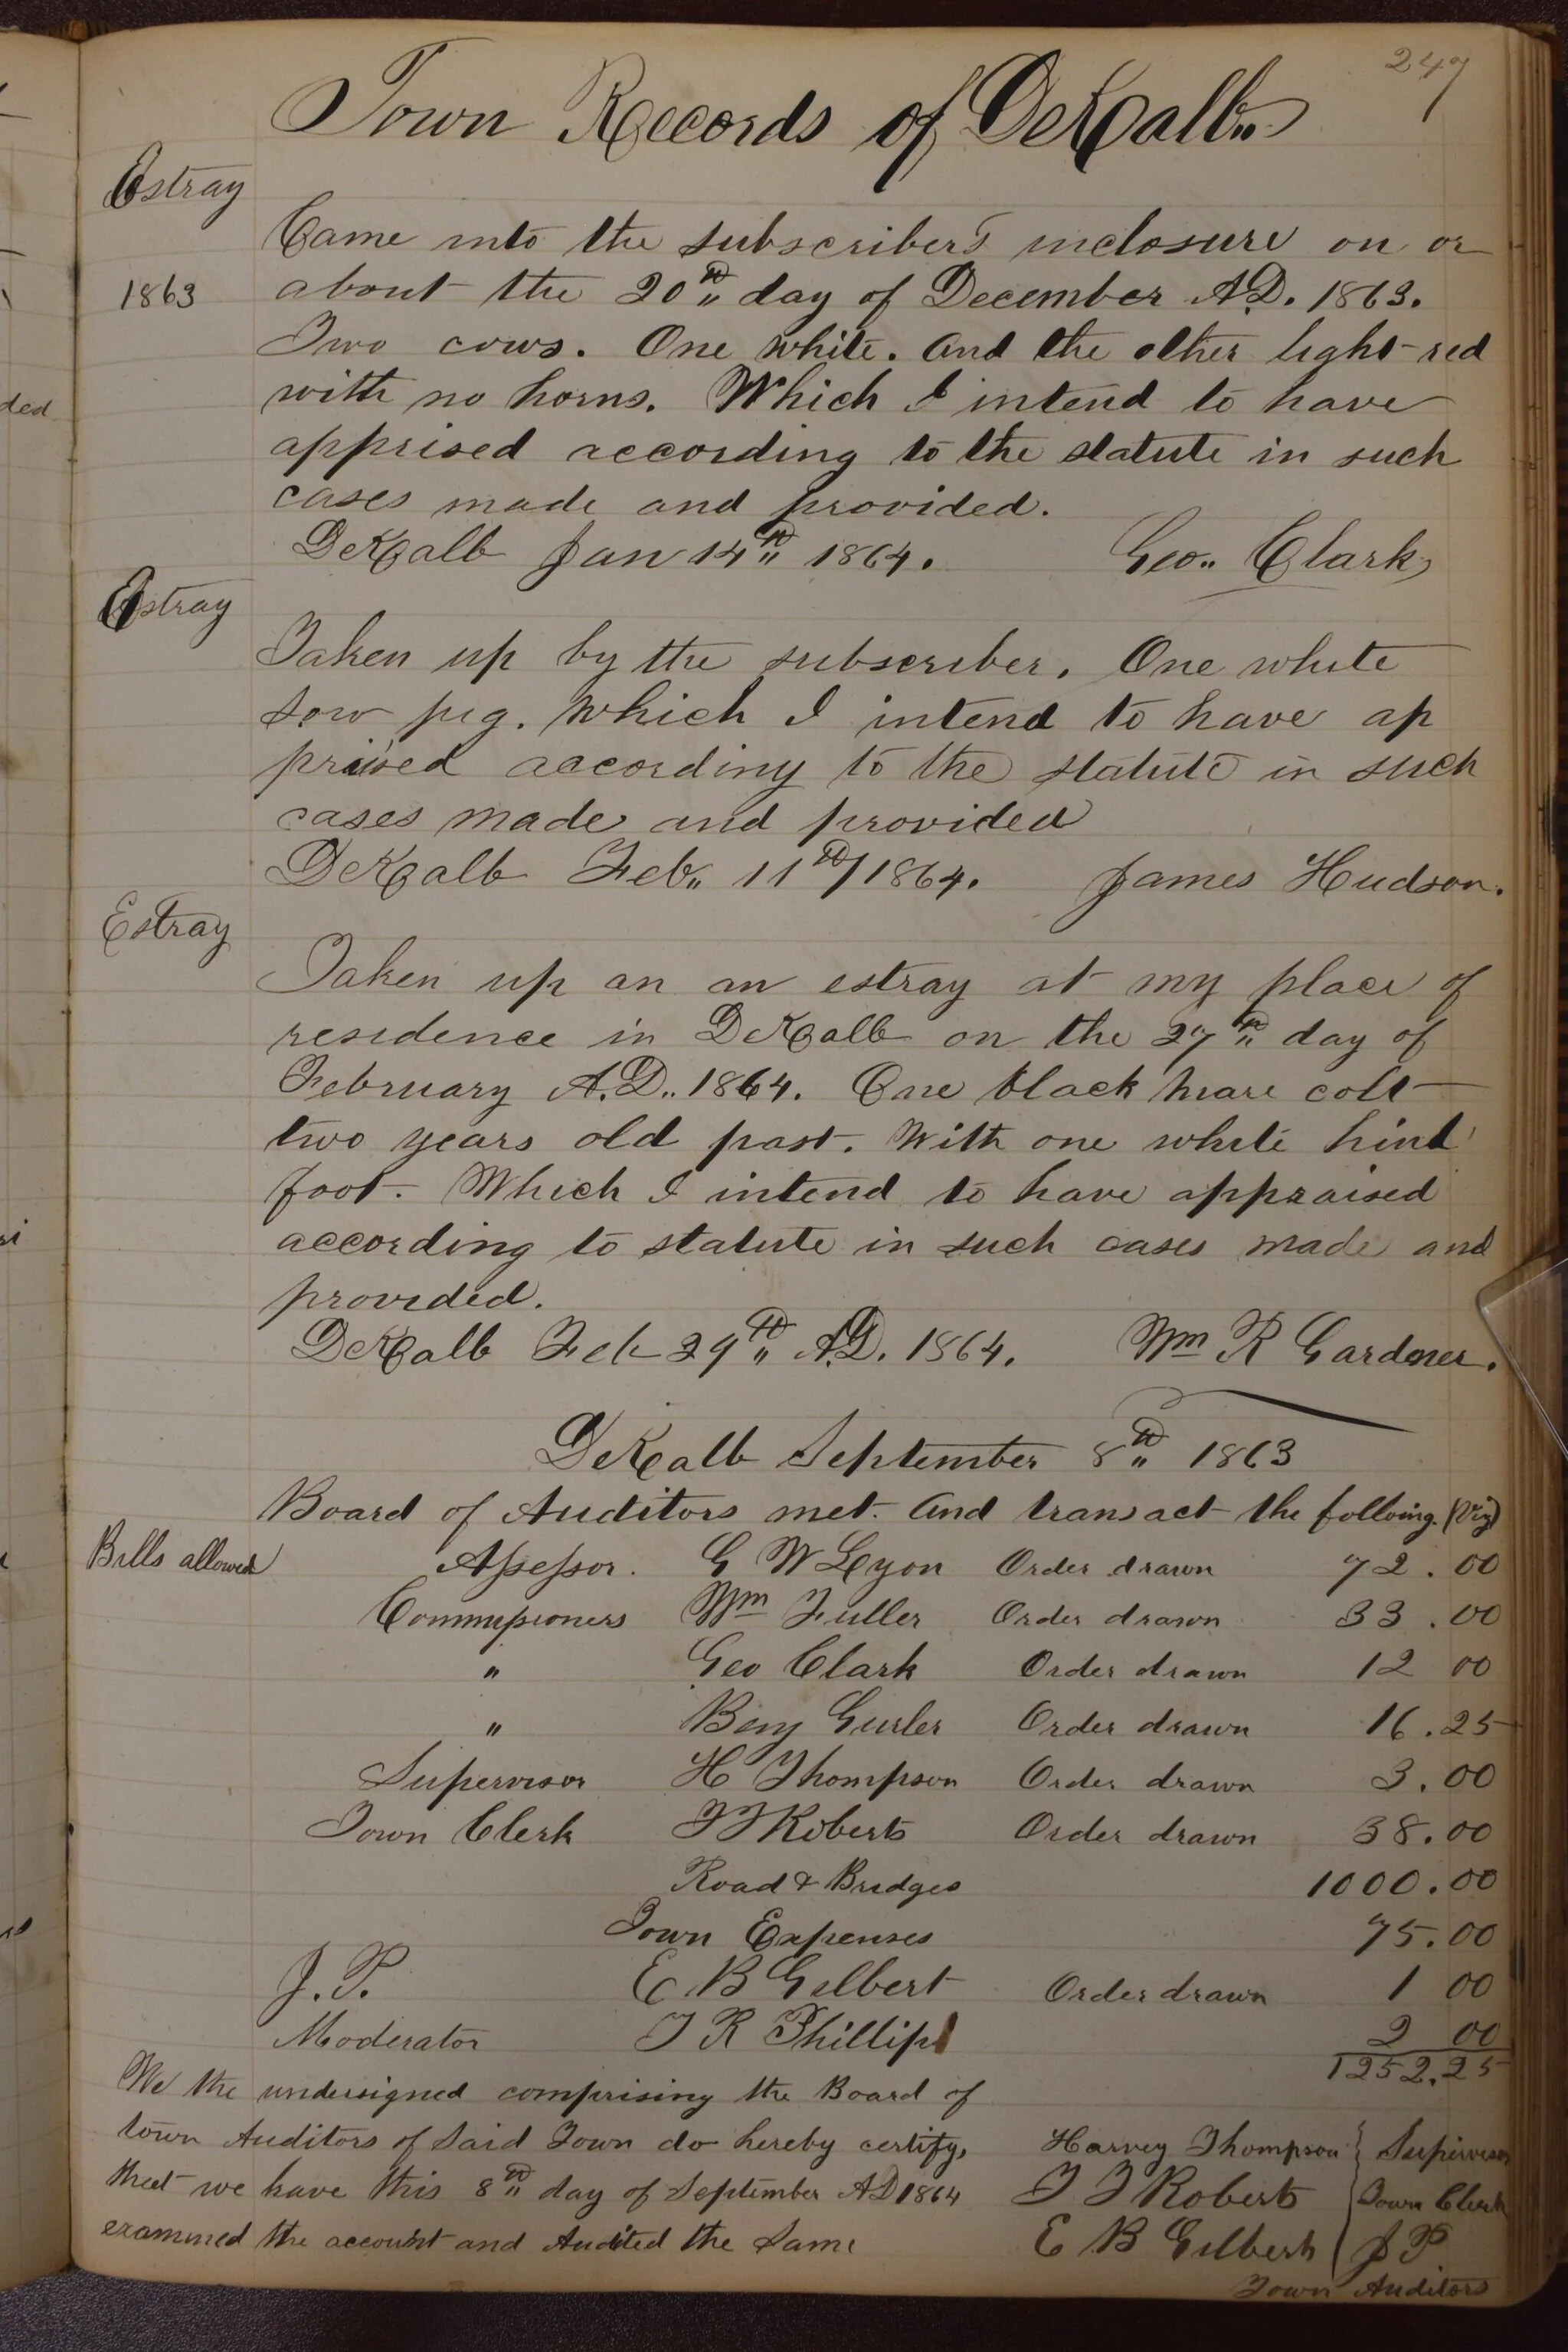 247
Town Records of DeKalb
Estray
Came into the subscriber's inclosure on or
1863 about the 20th day of December A.D. 1863.
Two cows. One white. And the other light-red
with no horns. Which I intend to have
apprised according to the statute in such
cases made and provided.
DeKalb Jan 14th 1864. Geo. Clark
Estray
Taken up by the subscriber. One white
sow pig. Which I intend to have ap
praised according to the statute in such
cases made and provided
DeKalb Feb. 11th/1864. James Hudson.
Estray
Taken up an an estray at my place of
residence in DeKalb on the 27th day of
February A.D. 1864. One black mare colt
two years old past. With one white hind
foot. Which I intend to have appraised
according to statute in such cases made and
provided.
DeKalb Feb 29th A.D. 1864. Wm R Gardner.
DeKalb September 8th 1863
Board of Auditors met. And transact the folloing. (Viz)
Bills allowed Assessor. G W Lyon Order drawn 72.00
Commissioners Wm Fuller Order drawn 33.00
" Geo Clark Order drawn 12 00
" Benj Gurler Order drawn 16.25
Supervisor H Thompson Order drawn 3.00
Town Clerk T T Roberts Order drawn 38.00
Road & Bridges 1000.00
Town Expenses 75.00
J. P. E B Gilbert Order drawn 1 00
Moderator T R Phillips 2 00
1252.25
We the undersigned comprising the Board of
town Auditors of Said Town do hereby certify,
that we have this 8th day of September AD 1864
examined the account and Audited the Same
Harvey Thompson } Supervisor
T T Roberts } Town Clerk
E B Gilbert } J P
Town Auditors
ded